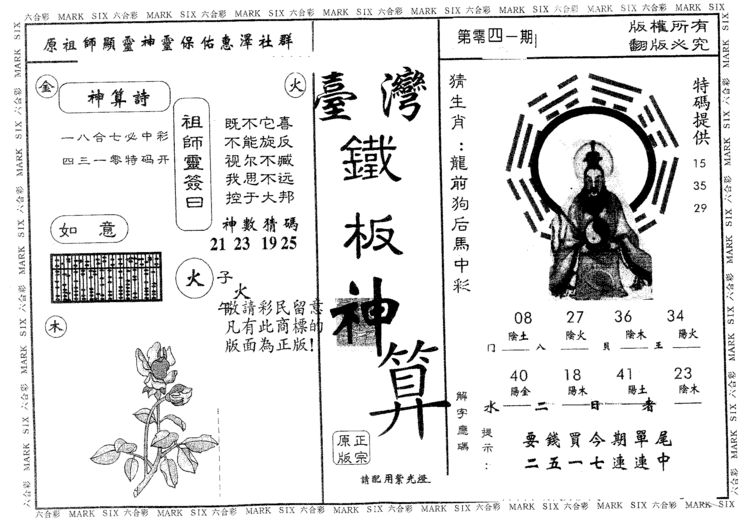 六合彩 MARK SIX 六合彩 MARK SIX 六合彩 MARK SIX 六合彩 MARK SIX 六合彩 MARK SIX 六合彩 MARK SIX 六合彩 MARK SIX 六合彩 MARK SIX
原祖師顯靈神靈保佑惠澤社群
金
神算詩
火
一八合七必中彩
四三一零特码开
祖師靈簽曰
既不它喜
不能旋反
视尔不臧
我思不远
控于大邦
神數猜碼
21 23 19 25
如意
火
子
火
午
敬請彩民留意
凡有此商標的
版面為正版!
木
臺灣
鐵板神算
正宗
原版
請配用紫光燈
第零四一期
版權所有
翻版必究
猜生肖:龍前狗后馬中彩
特碼提供
15
35
29
08 27 36 34
陰土 陰火 陰木 陽火
门 八 貝 王
40 18 41 23
陽金 陽木 陽土 陰木
水 二 日 者
解字應碼
提示:
要錢買今期單尾
二五一七連連中
六合彩 MARK SIX 六合彩 MARK SIX 六合彩 MARK SIX 六合彩 MARK SIX 六合彩 MARK SIX 六合彩 MARK SIX 六合彩 MARK SIX 六合彩 MARK SIX